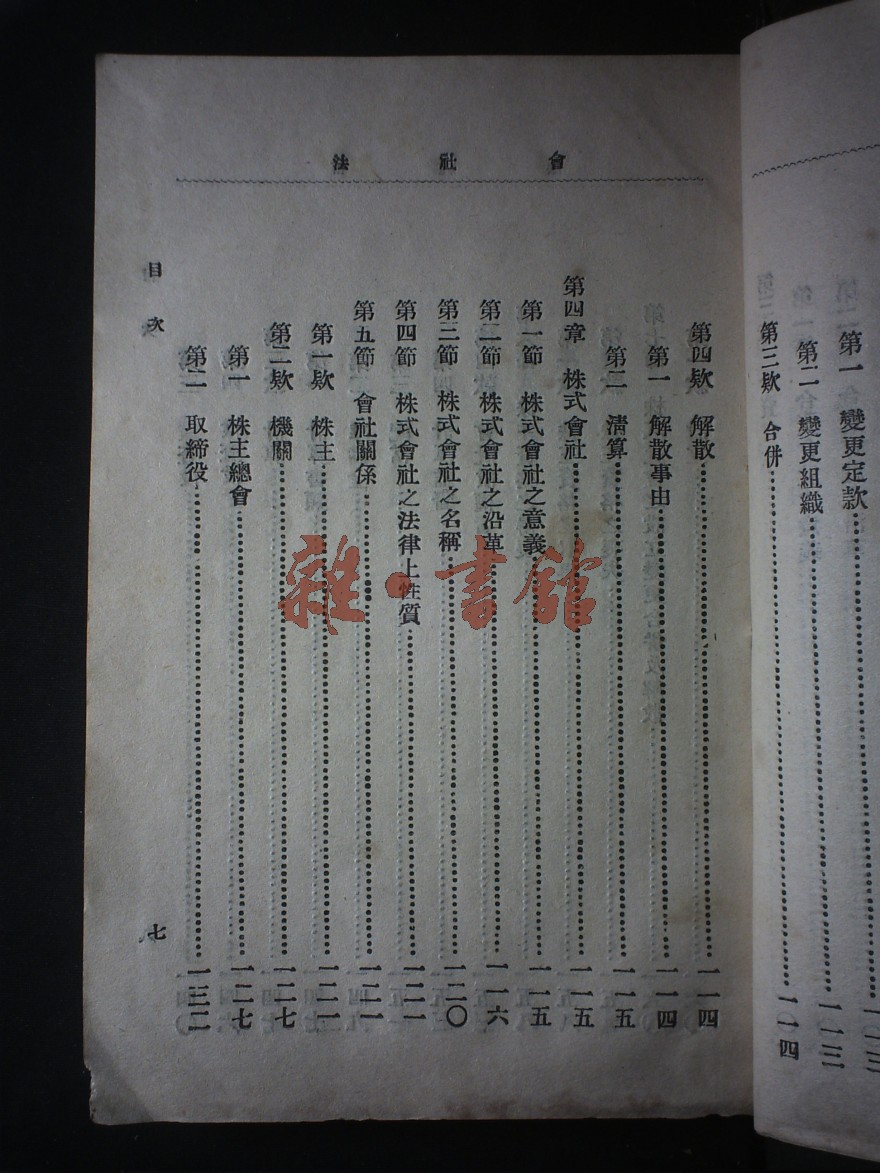 第一　變更定款………一〇三
第二　變更組織………一一三
第三欵　合併………一一四
會社法
第四欵　解散………一一四
第一　解散事由………一一四
第二　清算………一一五
第四章　株式會社………一一五
第一節　株式會社之意義………一一五
第二節　株式會社之沿革………一一六
第三節　株式會社之名稱………一二〇
第四節　株式會社之法律上性質………一二一
第五節　會社關係………一二一
第一欵　株主………一二一
第二欵　機關………一二七
第一　株主總會………一二七
第二　取締役………一三二
目次
七
雜·書館